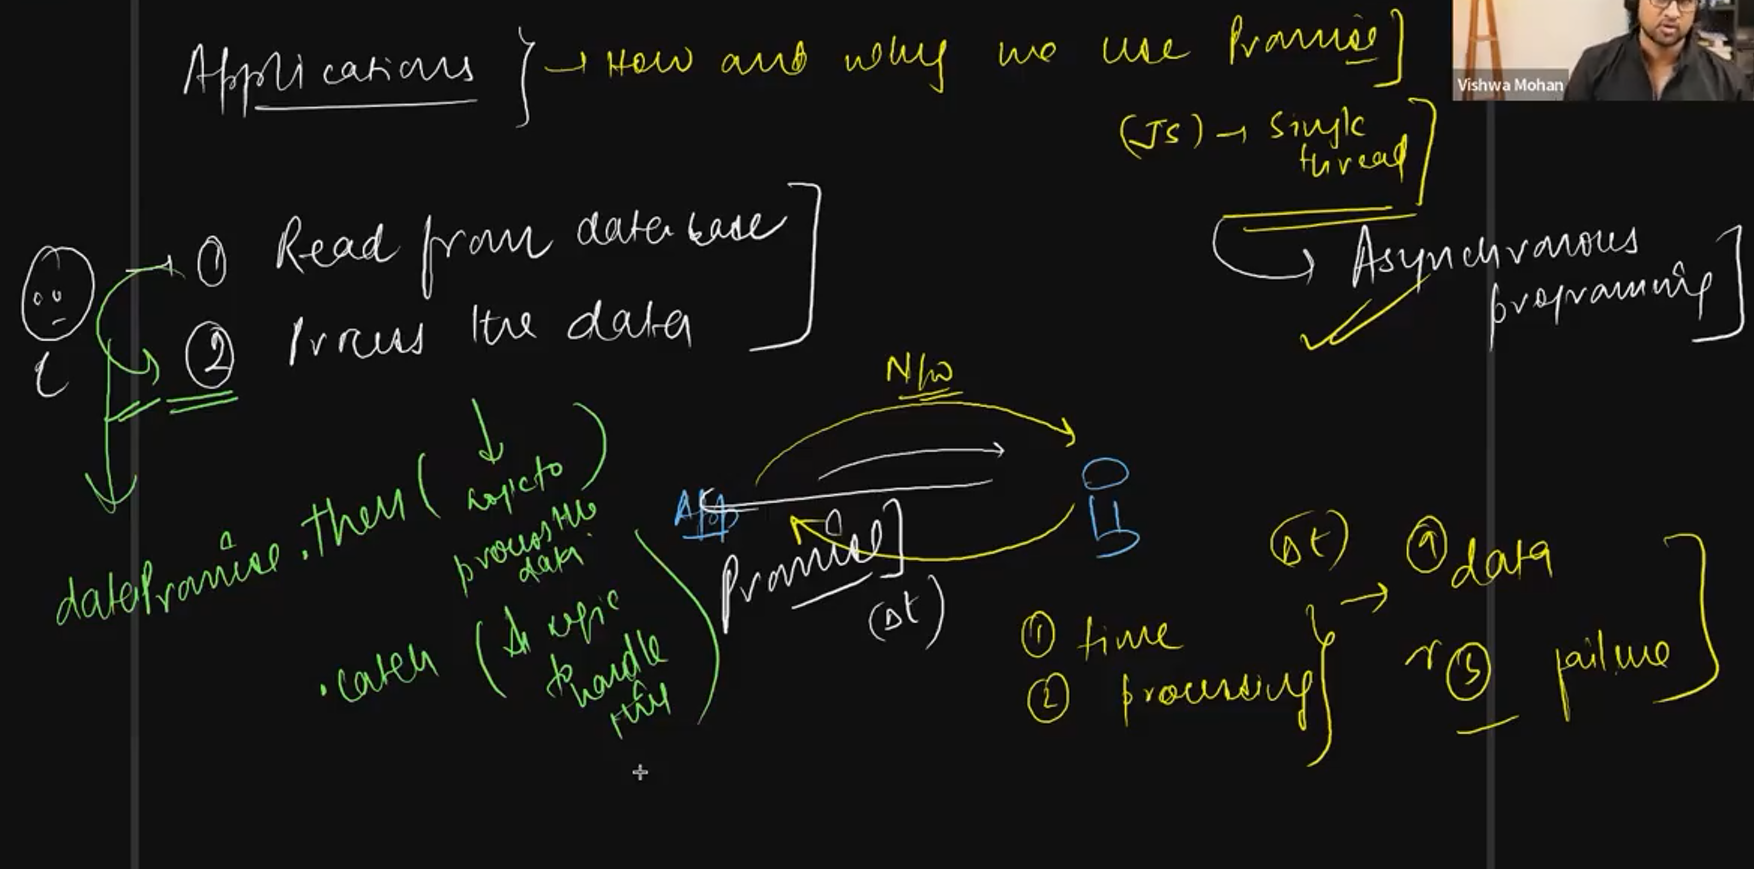 Applications } → How and why we use Promise]
Vishwa Mohan
(JS) → Single
thread
Asynchronous
programming
① Read from database
② Process the data
N/w
App
Promise
(Δt)
dataPromise.then( logic to
process the
data
)
.catch ( logic
to handle
this
)
① time
② processing
(Δt)
→ ① data
③ failure